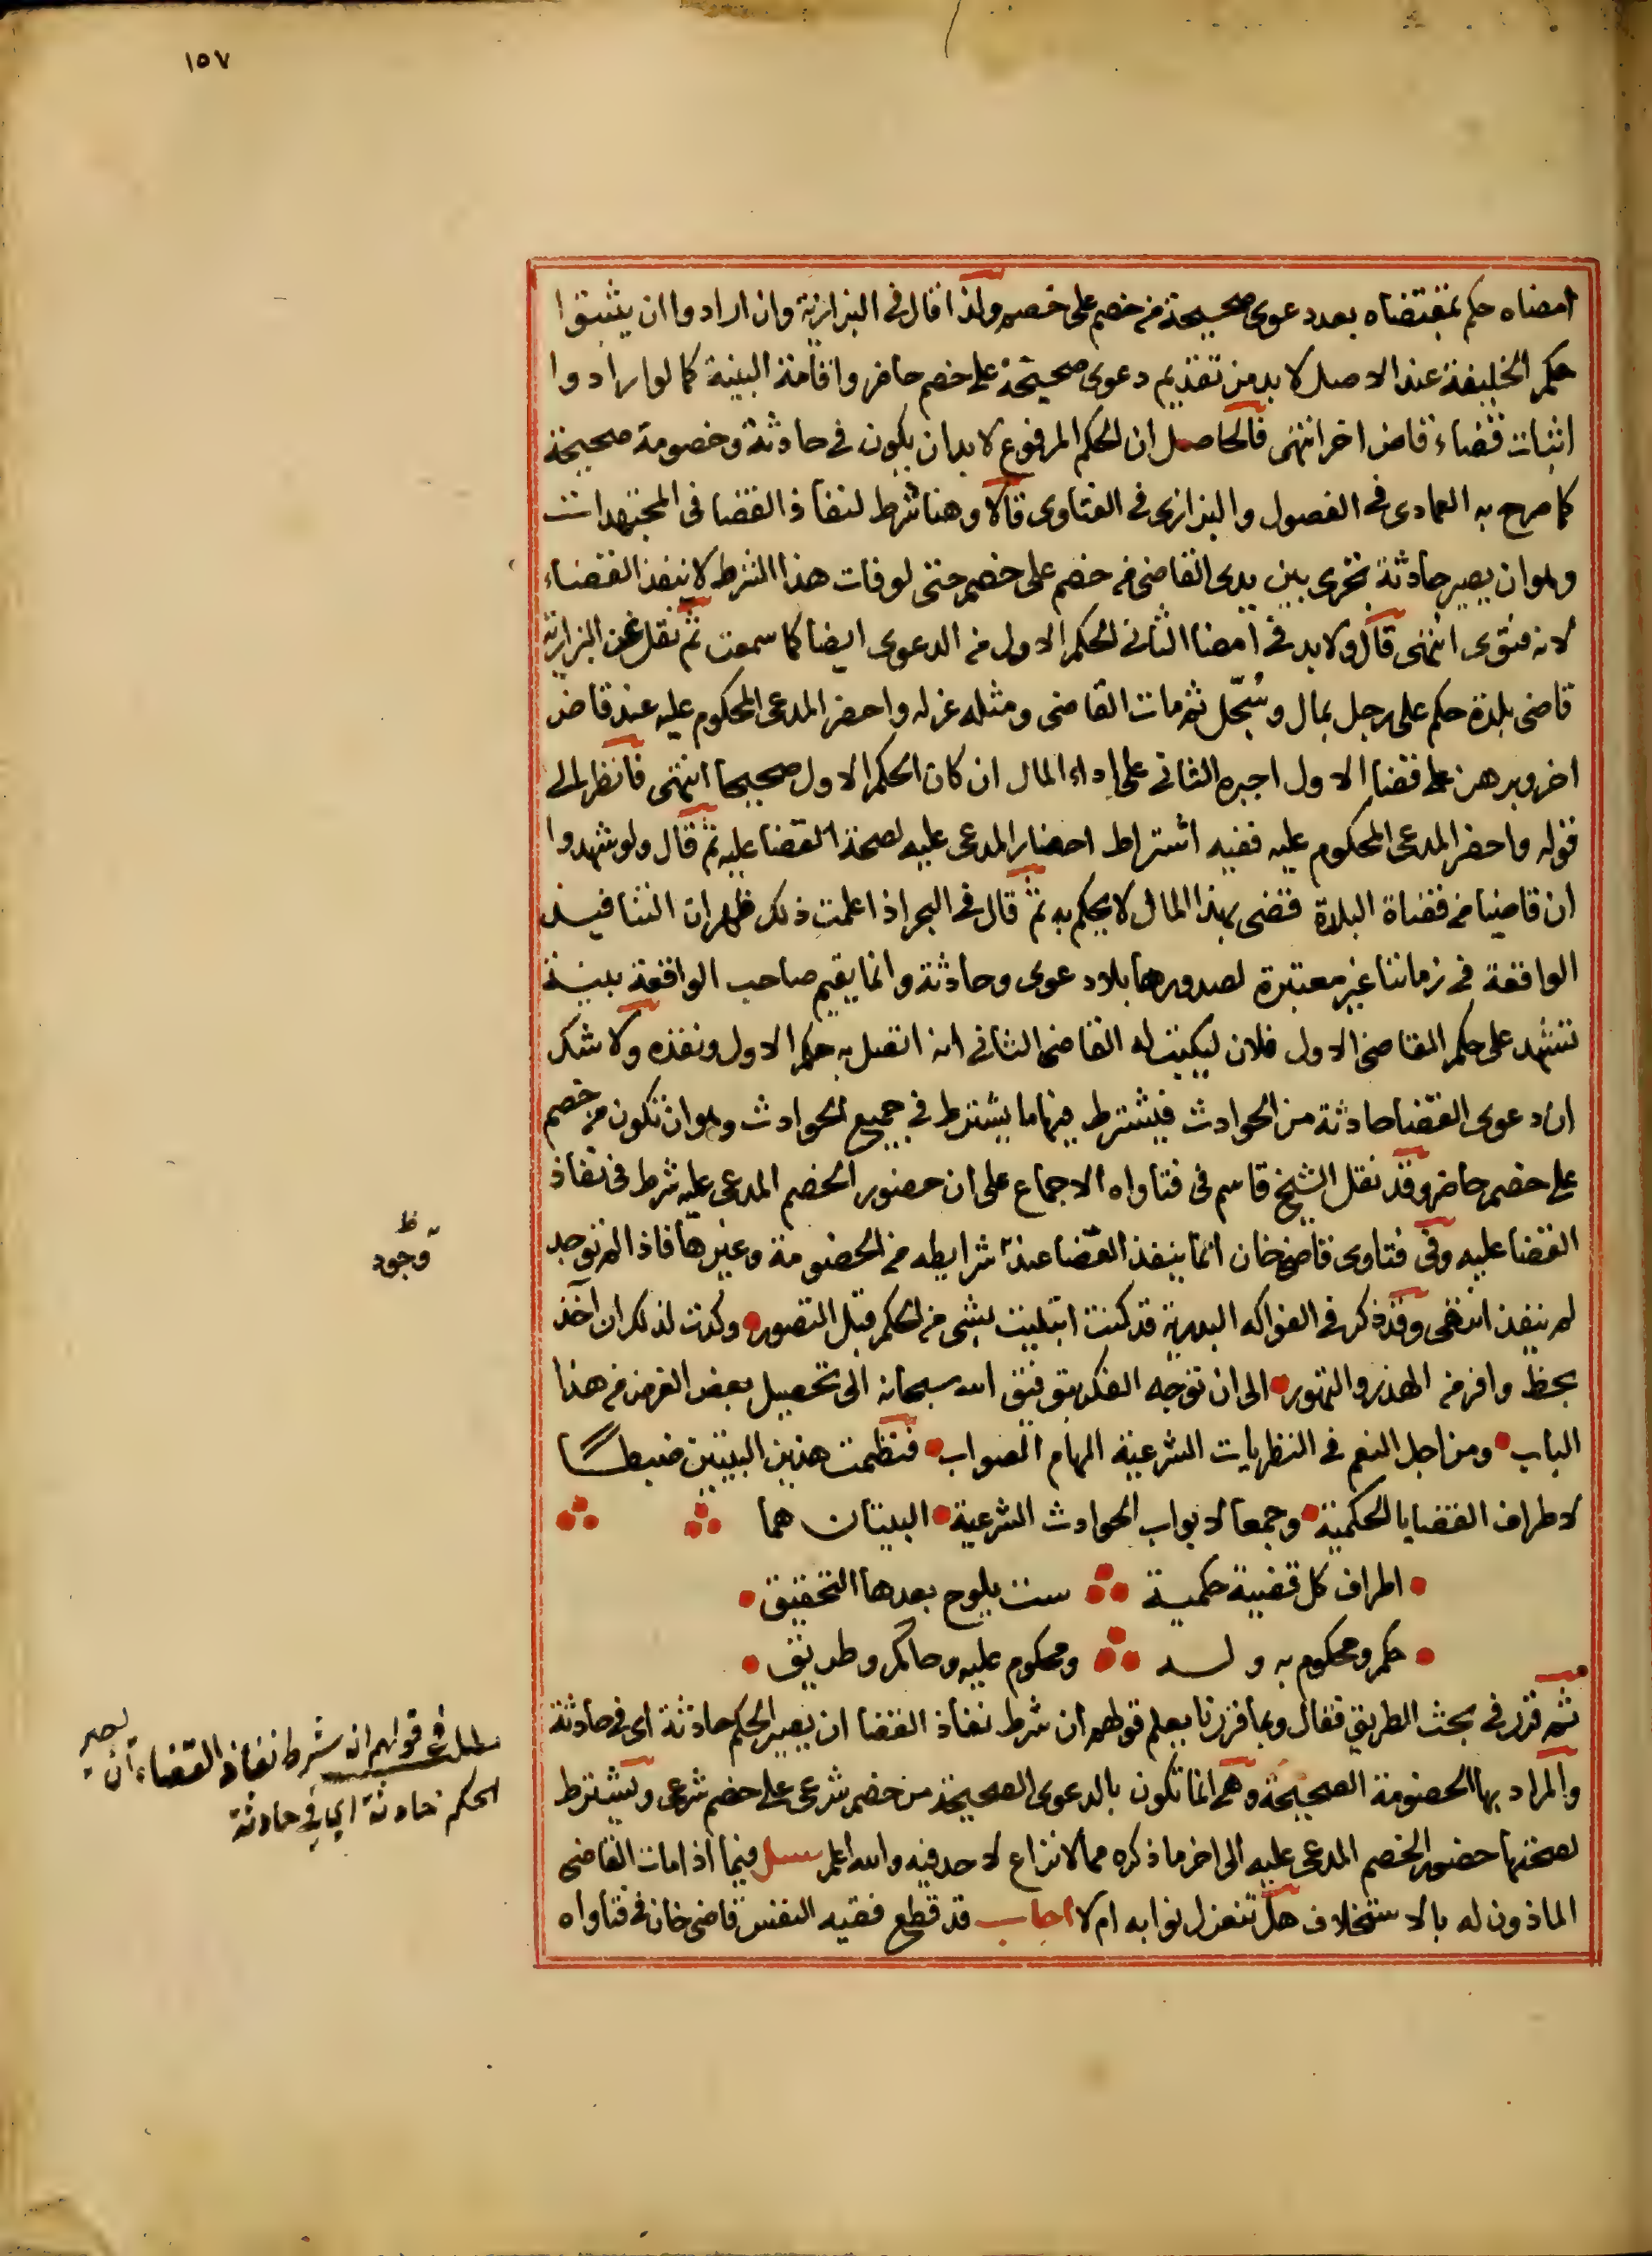 ١٥٧
امضاه حكم بمقتضاه بعد دعوى صحيحة من خصم على خصم ولذا قال في البزازية وان ارادوا ان يثبتوا
حكم الخليفة عند الاصل لا بد من تقديم دعوى صحيحة على خصم حاضر واقامة البينة كما لو ارادوا
اثبات قضاء قاض اخر انتهى فالحاصل ان الحكم المرفوع لا بد ان يكون في حادثة وخصومة صحيحة
كما صرح به العمادى في الفصول والبزازى في الفتاوى قالا وهنا شرط لنفاذ القضا فى المجتهدات
وهو ان يصير حادثة تجرى بين يدى القاضى من خصم على خصم حتى لو فات هذا الشرط لا ينفذ القضاء
لانه فتوى انتهى قال ولا بد في امضا الثانى لحكم الاول من الدعوى ايضا كما سمعت ثم نقل عن البزازية
قاضى بلدة حكم على رجل بمال وسُجّل ثم مات القاضى ومثله عزله واحضر المدعى المحكوم عليه عند قاض
اخر وبرهن على قضا الاول اجبره الثانى على اداء المال ان كان الحكم الاول صحيحا انتهى فانظر الى
قوله واحضر المدعى المحكوم عليه ففيه اشتراط احضار المدعى عليه لصحة القضا عليه ثم قال ولو شهدوا
ان قاضيا من قضاة البلدة قضى بهذا المال لا يحكم به ثم قال في البحر اذا علمت ذلك ظهر ان التنافيذ
الواقعة في زماننا غير معتبرة لصدورها بلا دعوى وحادثة وانما يقيم صاحب الواقعة بينة
تشهد على حكم القاضى الاول فلان ليكتب له القاضى الثانى انه اتصل به حكم الاول ونفذه ولا شك
ان دعوى القضا حادثة من الحوادث فيشترط فيها ما يشترط في جميع الحوادث وهو ان تكون من خصم
على خصم حاضر وقد نقل الشيخ قاسم فى فتاواه الاجماع على ان حضور الخصم المدعى عليه شرط فى نفاذ
القضا عليه وفى فتاوى قاضى خان انما ينفذ القضا عند شرايطه من الخصومة وغيرها فاذا لم توجد
لم ينفذ انتهى وقد ذكر في الفواكه البدرية قد كنت ابتليت بشى من الحكم قبل التصور وكدت لذلك ان آخذ
بحظ وافر من الهذر والتهور الى ان توجه الفكر بتوفيق الله سبحانه الى تحصيل بعض الغرض من هذا
الباب ومن اجل النعم في النظريات الشرعية الهام الصواب فنظمت هذين البيتين ضبطا
لاطراف القضايا الحكمية وجمعا لابواب الحوادث الشرعية البيتان هما
اطراف كل قضية حكمية ست يلوح بعدها التحقيق
حكم ومحكوم به وله ومحكوم عليه وحاكم وطريق
ثم قرر في بحث الطريق فقال وبما قررنا يعلم قولهم ان شرط نفاذ القضا ان يصير الحكم حادثة اى في حادثة
والمراد بها الخصومة الصحيحة وهى انما تكون بالدعوى الصحيحة من خصم شرعى على خصم شرعى ويشترط
لصحتها حضور الخصم المدعى عليه الى اخر ما ذكره مما لا نزاع لاحد فيه والله اعلم سئل فيما اذا مات القاضى
الماذون له بالاستخلاف هل تنعزل نوابه ام لا اجاب قد قطع فقيه النفس قاضى خان في فتاواه
ظ
وجود
مطلب في قولهم ان شرط نفاذ القضاء ان يصير
الحكم حادثة اي في حادثة